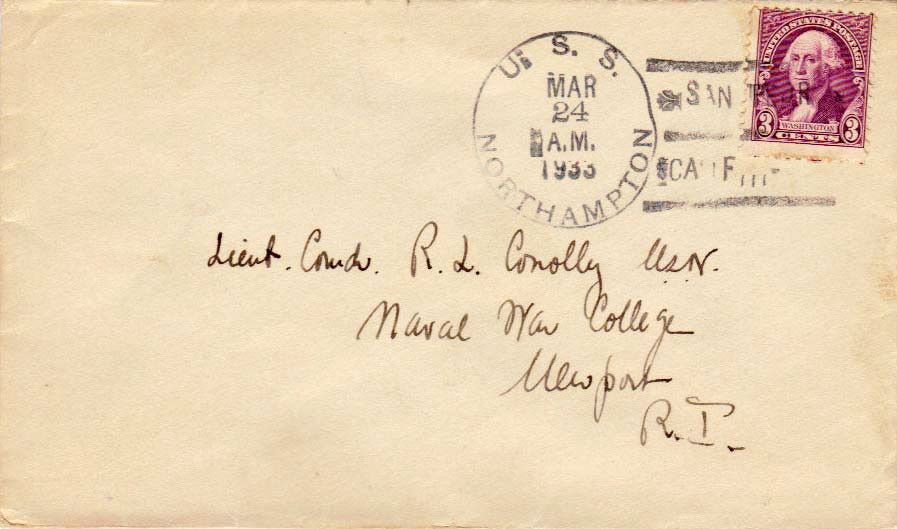 U. S. S.
NORTHAMPTON
MAR
24
A.M.
1933
SAN
CALIF
UNITED STATES POSTAGE
WASHINGTON
3 CENTS 3
Lieut. Comdr. R. L. Conolly USN.
Naval War College
Newport
R. I.